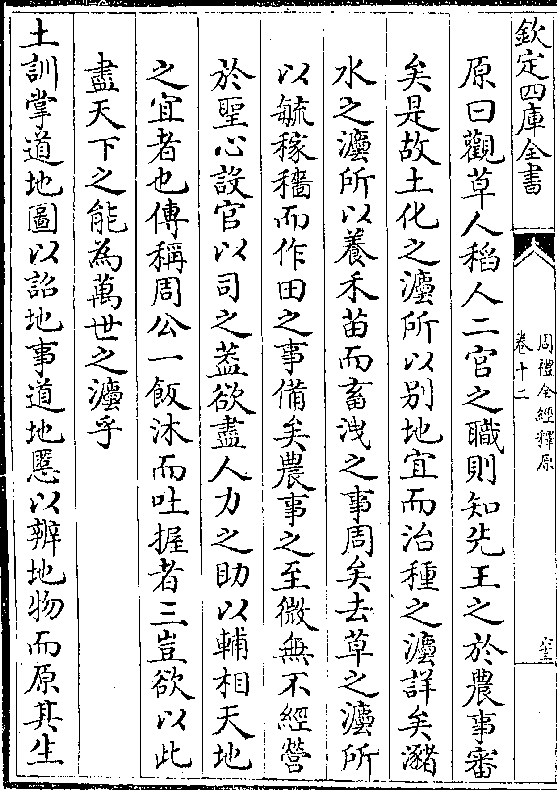 欽定四庫全書
周禮全經釋原
卷十二
原曰觀草人稻人二官之職則知先王之於農事審
矣是故土化之灋所以别地宜而治種之灋詳矣瀦
水之灋所以養禾苗而畜洩之事周矣去草之灋所
以毓稼穡而作田之事備矣農事之至微無不經營
於聖心設官以司之葢欲盡人力之助以輔相天地
之宜者也傳稱周公一飯沐而吐握者三豈欲以此
盡天下之能為萬世之灋乎
土訓掌道地圖以詔地事道地慝以辨地物而原其生